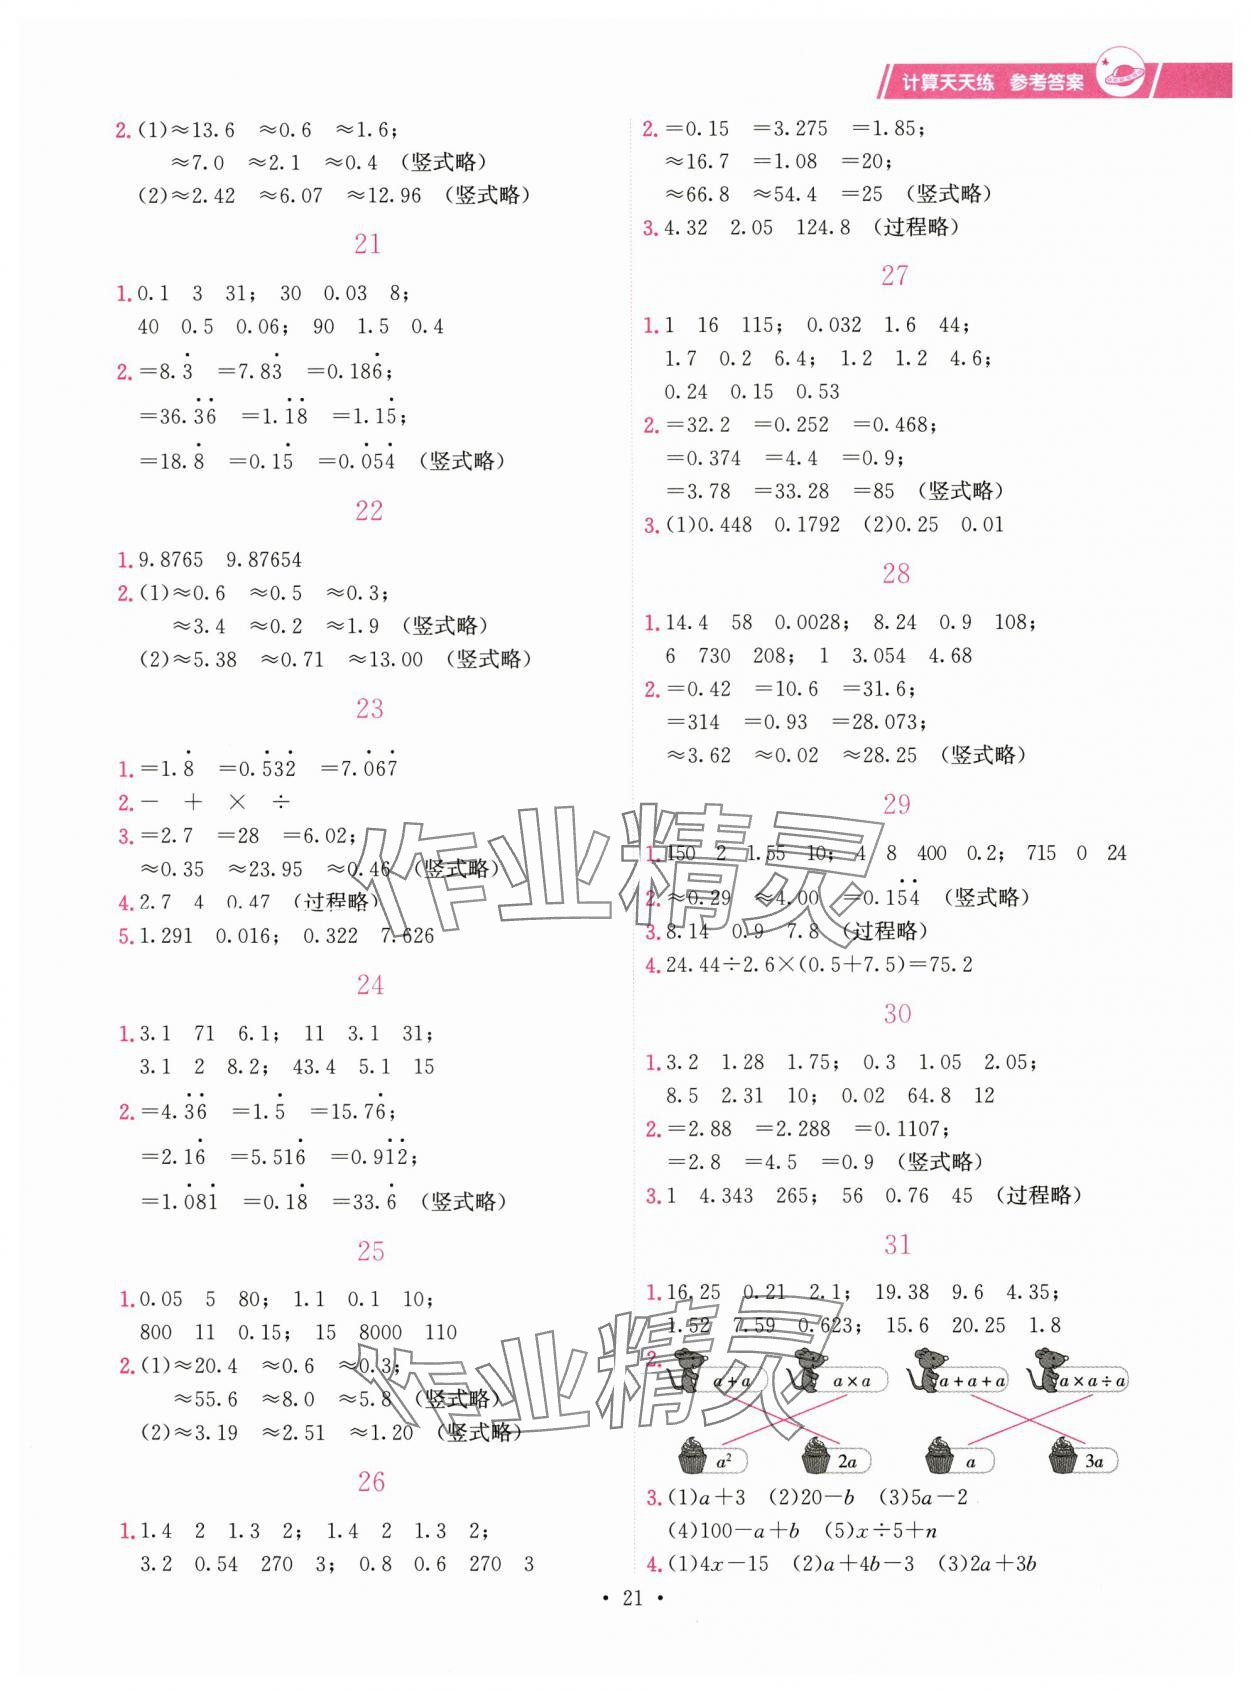 计算天天练 参考答案
2. (1)≈13.6 ≈0.6 ≈1.6;
≈7.0 ≈2.1 ≈0.4 (竖式略)
(2)≈2.42 ≈6.07 ≈12.96 (竖式略)
21
1. 0.1 3 31; 30 0.03 8;
40 0.5 0.06; 90 1.5 0.4
2. =8.3̇ =7.83̇ =0.186̇;
=36.3̇6̇ =1.1̇8̇ =1.15̇;
=18.8̇ =0.15̇ =0.0̇54̇ (竖式略)
22
1. 9.8765 9.87654
2. (1)≈0.6 ≈0.5 ≈0.3;
≈3.4 ≈0.2 ≈1.9 (竖式略)
(2)≈5.38 ≈0.71 ≈13.00 (竖式略)
23
1. =1.8̇ =0.5̇3̇2 =7.0̇6̇7
2. － ＋ × ÷
3. =2.7 =28 =6.02;
≈0.35 ≈23.95 ≈0.46 (竖式略)
4. 2.7 4 0.47 (过程略)
5. 1.291 0.016; 0.322 7.626
24
1. 3.1 71 6.1; 11 3.1 31;
3.1 2 8.2; 43.4 5.1 15
2. =4.3̇6̇ =1.5̇ =15.76̇;
=2.16̇ =5.516̇ =0.91̇2̇;
=1.0̇81̇ =0.18̇ =33.6̇ (竖式略)
25
1. 0.05 5 80; 1.1 0.1 10;
800 11 0.15; 15 8000 110
2. (1)≈20.4 ≈0.6 ≈0.3;
≈55.6 ≈8.0 ≈5.8 (竖式略)
(2)≈3.19 ≈2.51 ≈1.20 (竖式略)
26
1. 1.4 2 1.3 2; 1.4 2 1.3 2;
3.2 0.54 270 3; 0.8 0.6 270 3
2. =0.15 =3.275 =1.85;
≈16.7 =1.08 =20;
≈66.8 ≈54.4 =25 (竖式略)
3. 4.32 2.05 124.8 (过程略)
27
1. 1 16 115; 0.032 1.6 44;
1.7 0.2 6.4; 1.2 1.2 4.6;
0.24 0.15 0.53
2. =32.2 =0.252 =0.468;
=0.374 =4.4 =0.9;
=3.78 =33.28 =85 (竖式略)
3. (1)0.448 0.1792 (2)0.25 0.01
28
1. 14.4 58 0.0028; 8.24 0.9 108;
6 730 208; 1 3.054 4.68
2. =0.42 =10.6 =31.6;
=314 =0.93 =28.073;
≈3.62 ≈0.02 ≈28.25 (竖式略)
29
1. 150 2 1.55 10; 4 8 400 0.2; 715 0 24
2. ≈0.29 ≈4.00 =0.15̇4̇ (竖式略)
3. 8.14 0.9 7.8 (过程略)
4. 24.44÷2.6×(0.5+7.5)=75.2
30
1. 3.2 1.28 1.75; 0.3 1.05 2.05;
8.5 2.31 10; 0.02 64.8 12
2. =2.88 =2.288 =0.1107;
=2.8 =4.5 =0.9 (竖式略)
3. 1 4.343 265; 56 0.76 45 (过程略)
31
1. 16.25 0.21 2.1; 19.38 9.6 4.35;
1.52 7.59 0.623; 15.6 20.25 1.8
2. a+a a×a a+a+a a×a÷a
a² 2a a 3a
3. (1)a+3 (2)20－b (3)5a－2
(4)100－a+b (5)x÷5+n
4. (1)4x－15 (2)a+4b－3 (3)2a+3b
• 21 •
作业精灵
作业精灵